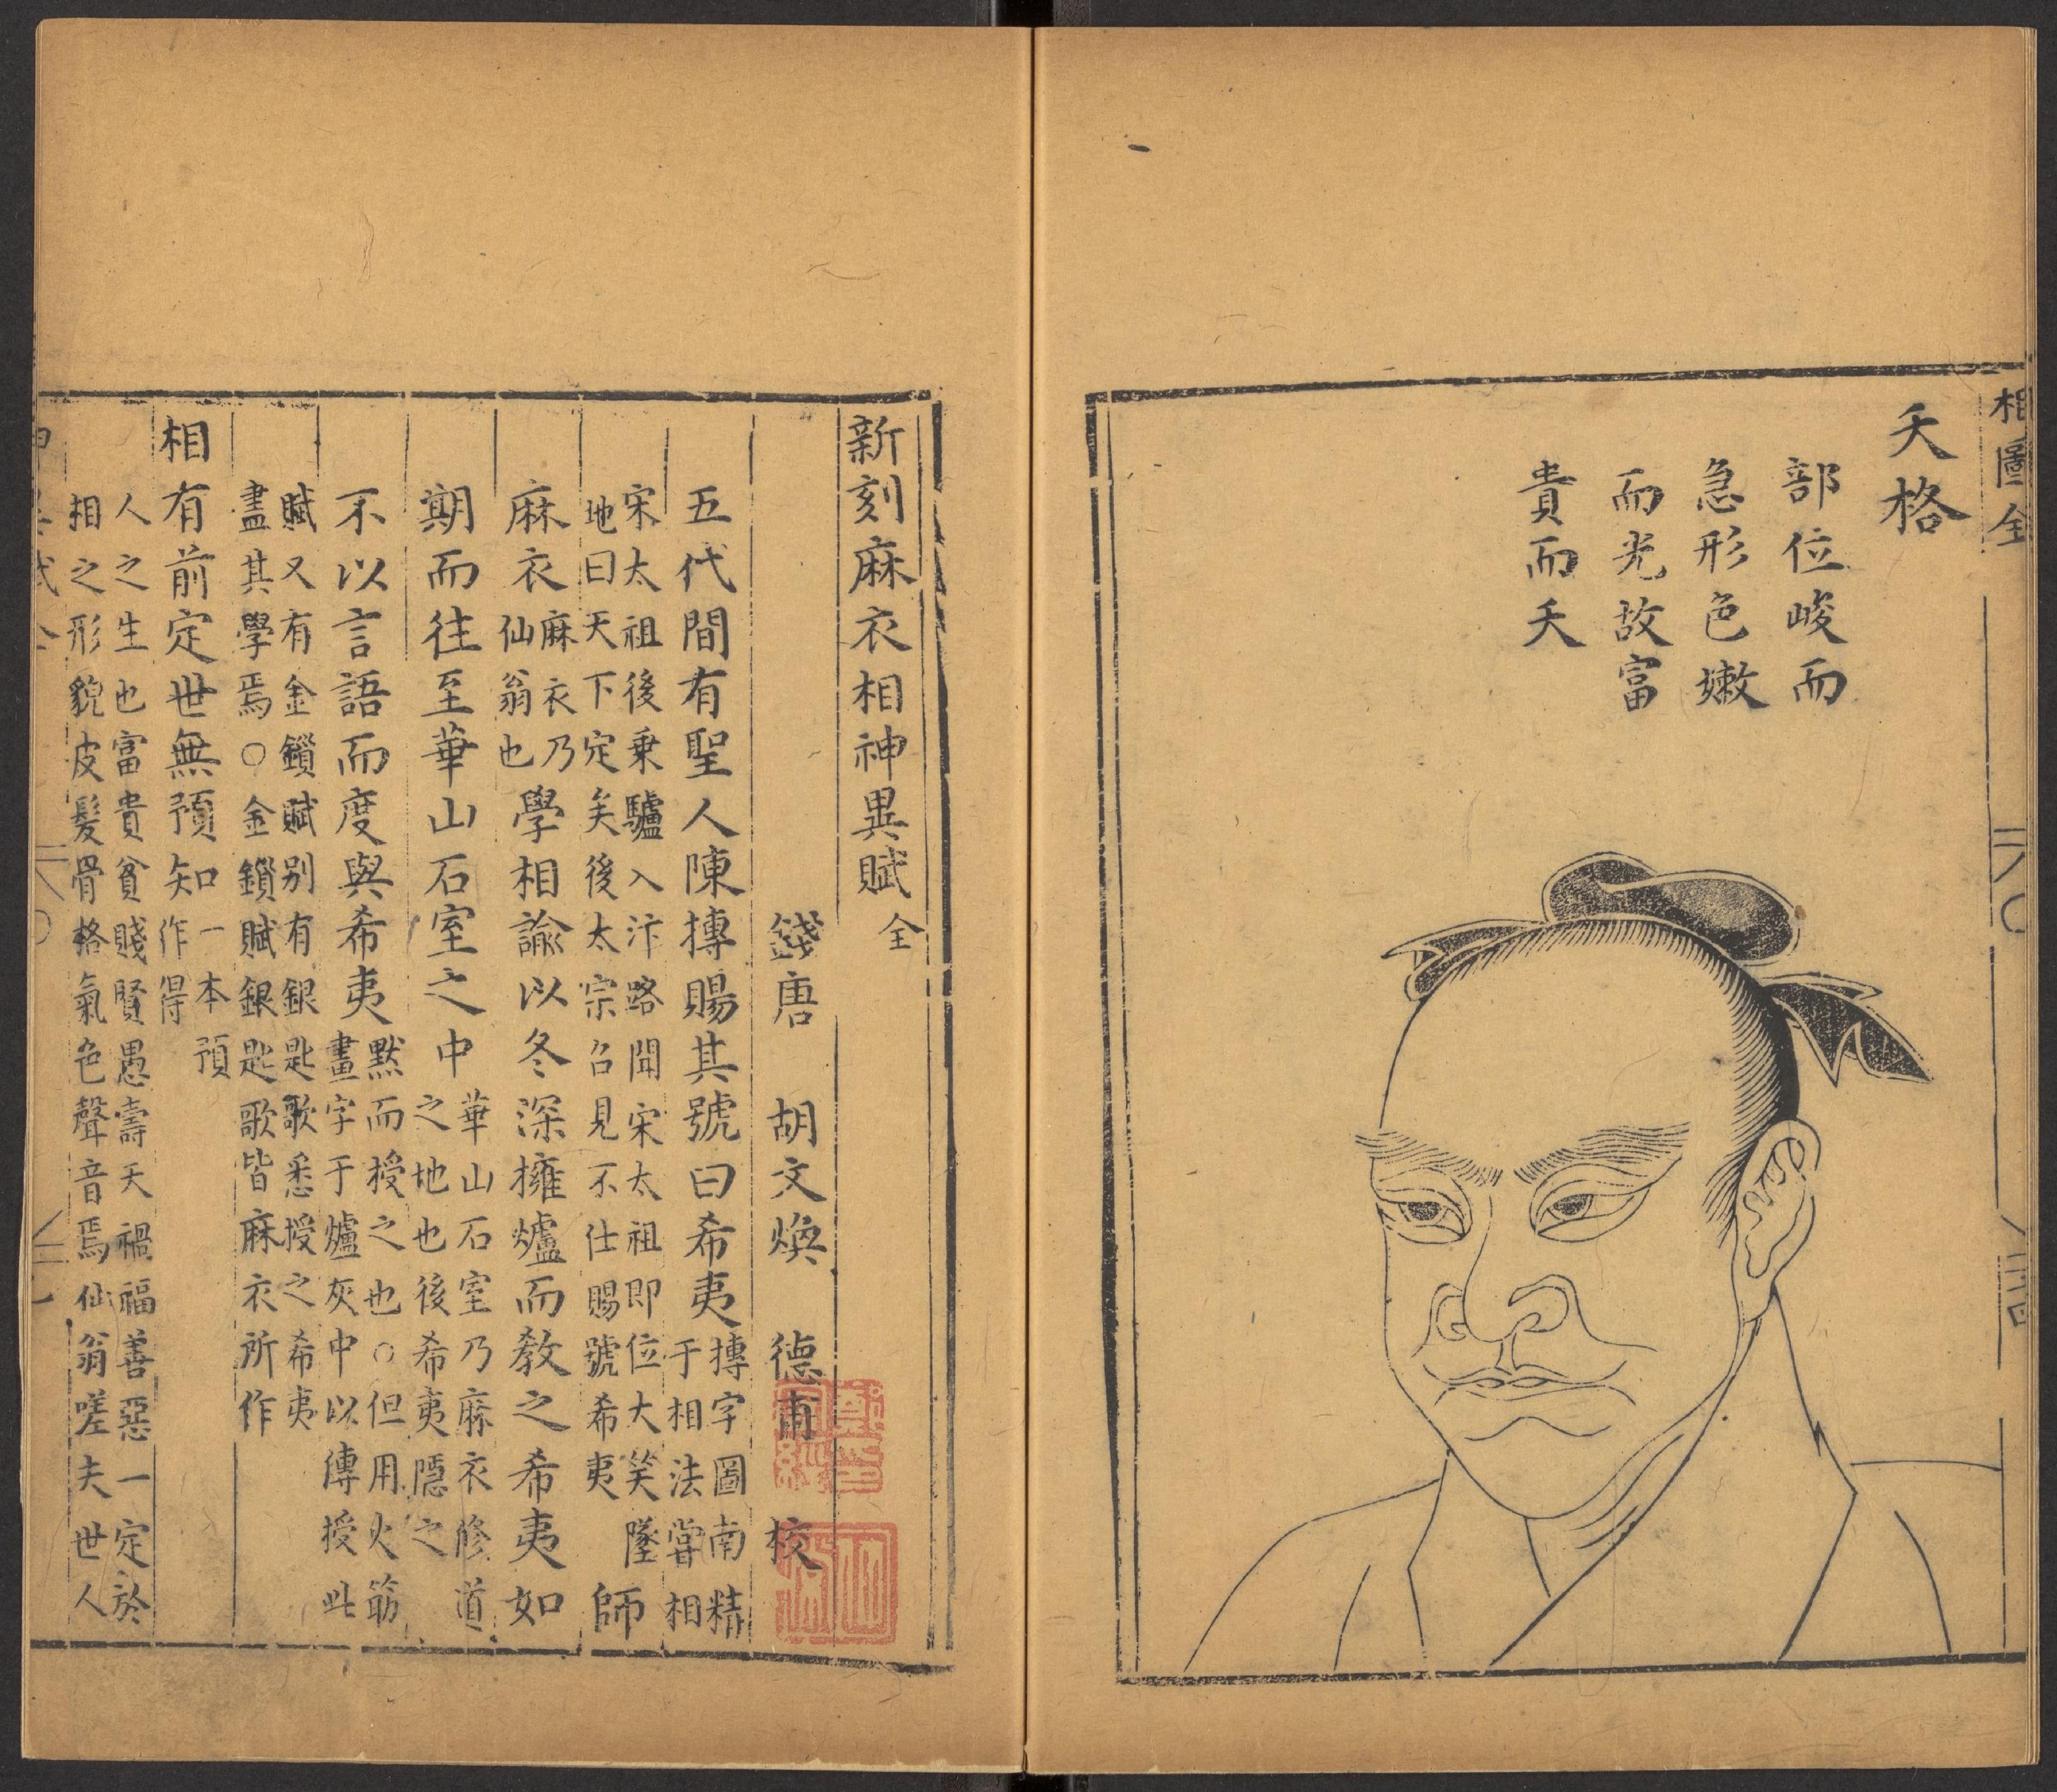 相圖全
夭格
部位峻而
急形色嫩
而光故富
貴而夭
新刻麻衣相神異賦 全
錢唐 胡文煥 德甫 校
五代間有聖人陳摶賜其號曰希夷
摶字圖南精
于相法嘗相
宋太祖後乗驢入汴路聞宋太祖即位大笑墜
地曰天下定矣後太宗召見不仕賜號希夷
師
麻衣
麻衣乃
仙翁也
學相諭以冬深擁爐而教之希夷如
期而往至華山石室之中
華山石室乃麻衣修道
之地也後希夷隱之
不以言語而度與希夷
黙而授之也○但用火筯
畫字于爐灰中以傳授此
賦又有金鎖賦别有銀匙歌悉授之希夷
盡其學焉○金鎖賦銀匙歌皆麻衣所作
相有前定世無預知
一本預
作得
人之生也富貴貧賤賢愚壽夭禍福善惡一定於
相之形貌皮髮骨格氣色聲音焉仙翁嗟夫世人